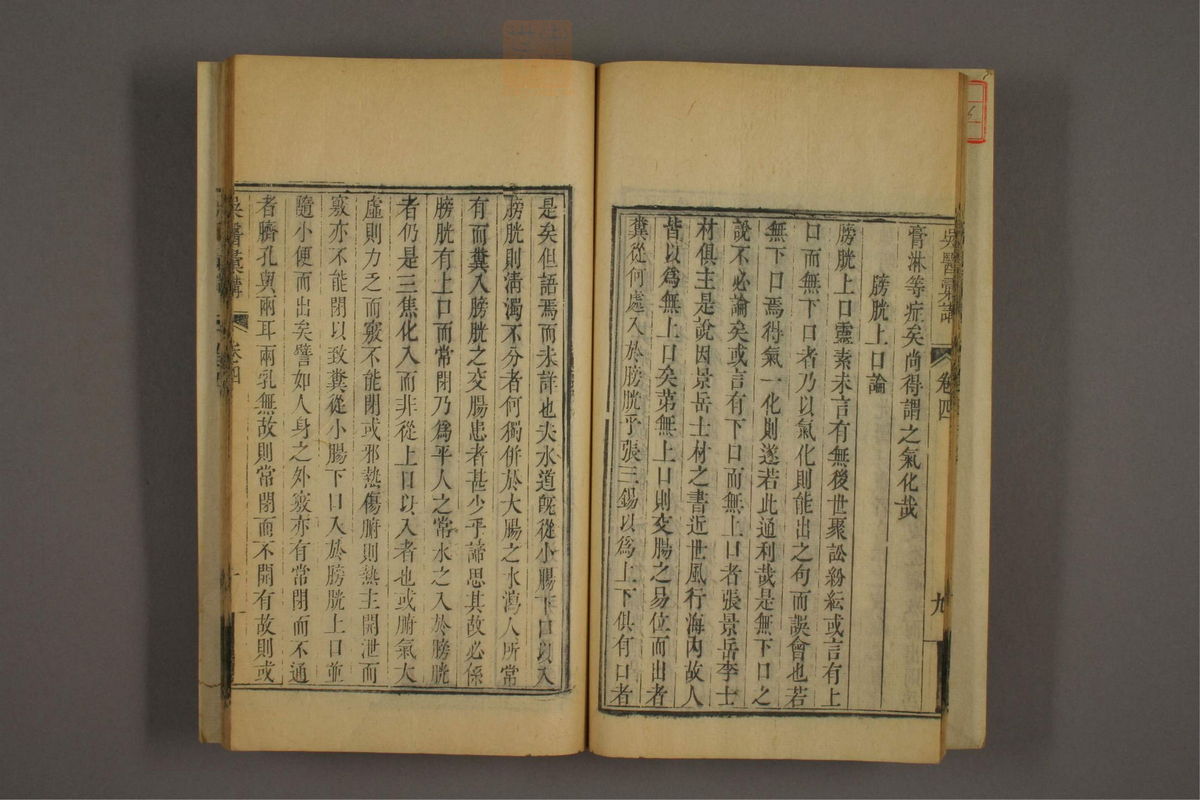 吳醫彙講
卷四
九
膏淋等症矣尚得謂之氣化哉
膀胱上口論
膀胱上口靈素未言有無後世聚訟紛紜或言有上
口而無下口者乃以氣化則能出之句而誤會也若
無下口焉得氣一化則遂若此通利哉是無下口之
說不必論矣或言有下口而無上口者張景岳李士
材俱主是說因景岳士材之書近世風行海內故人
皆以為無上口矣第無上口則交腸之易位而出者
糞從何處入於膀胱乎張三錫以為上下俱有口者
是矣但語焉而未詳也夫水道旣從小腸下口以入
膀胱則淸濁不分者何獨併於大腸之水瀉人所常
有而糞入膀胱之交腸患者甚少乎諦思其故必係
膀胱有上口而常閉乃為平人之常水之入於膀胱
者仍是三焦化入而非從上口以入者也或腑氣大
虛則力乏而竅不能閉或邪熱傷腑則熱主開泄而
竅亦不能閉以致糞從小腸下口入於膀胱上口並
隨小便而出矣譬如人身之外竅亦有常閉而不通
者臍孔與兩耳兩乳無故則常閉而不開有故則或
吳醫彙講
卷四